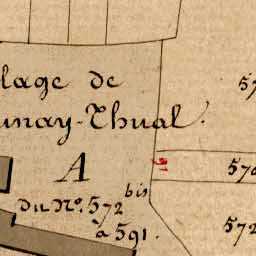 lage de
unay-Thual.
A
du Nos. 572 bis
à 591.
572